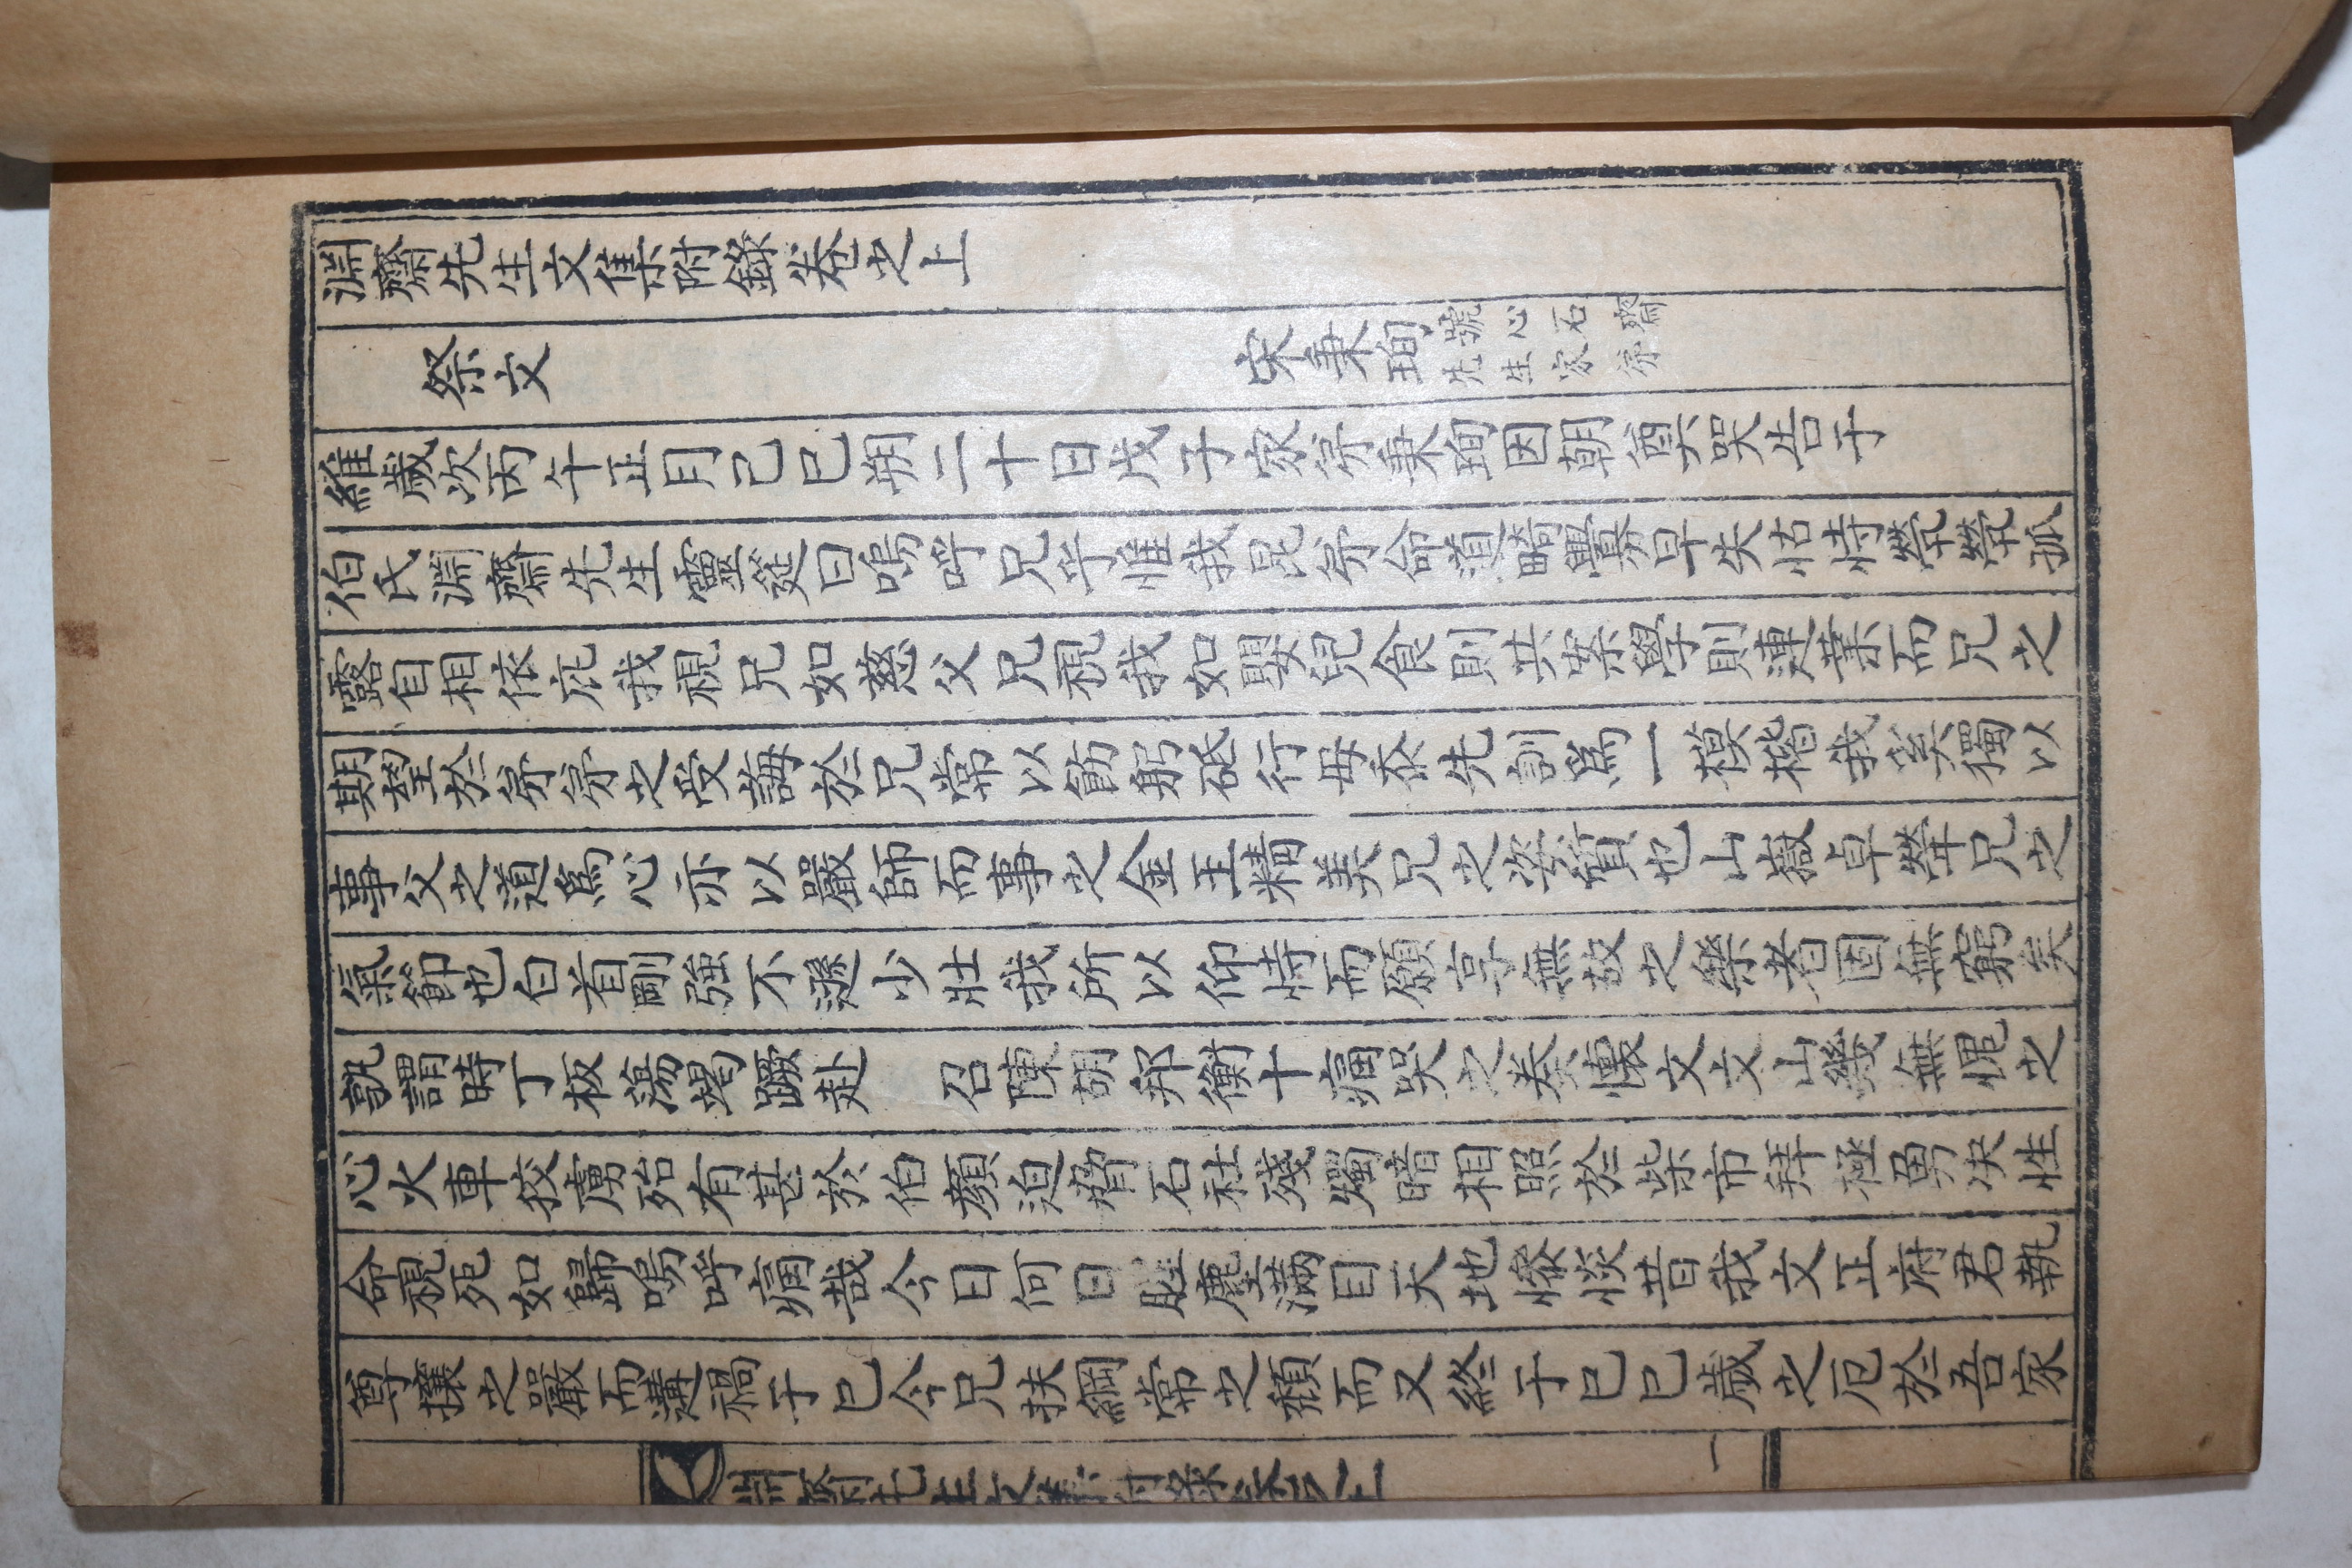 淵齋先生文集附錄卷之上
祭文 宋秉珣 號心石齋 先生家弟
維歲次丙午正月己巳朔二十日戊子家弟秉珣因朝奠哭告于
伯氏淵齋先生靈筵曰嗚呼兄乎惟我昆弟命道畸釁早失怙恃煢煢孤
露自相依庇我視兄如慈父兄視我如嬰兒食則共案學則連業而兄之
期望於弟弟之受誨於兄常以飭躬砥行毋忝先訓爲一模楷我奚獨以
事父之道爲心亦以嚴師而事之金玉精美兄之姿質也山嶽卓犖兄之
氣節也白首剛強不遜少壯我所以仰恃而願享無故之樂者固無窮矣
孰謂時丁板蕩竭蹶赴 召陳胡邦衡十痛哭之奏懷文文山幾無愧之
心火車狡虜殆有甚於伯顏迫脅石社殘燭暗相照於柴市拜極勇决性
命視死如歸嗚呼痛哉今日何日腥塵滿目天地憯惔昔我文正府君執
尊攘之嚴而遘禍于巳今兄扶綱常之頹而又終于巳巳歲之厄於吾家
淵齋先生文集附錄卷之上 一